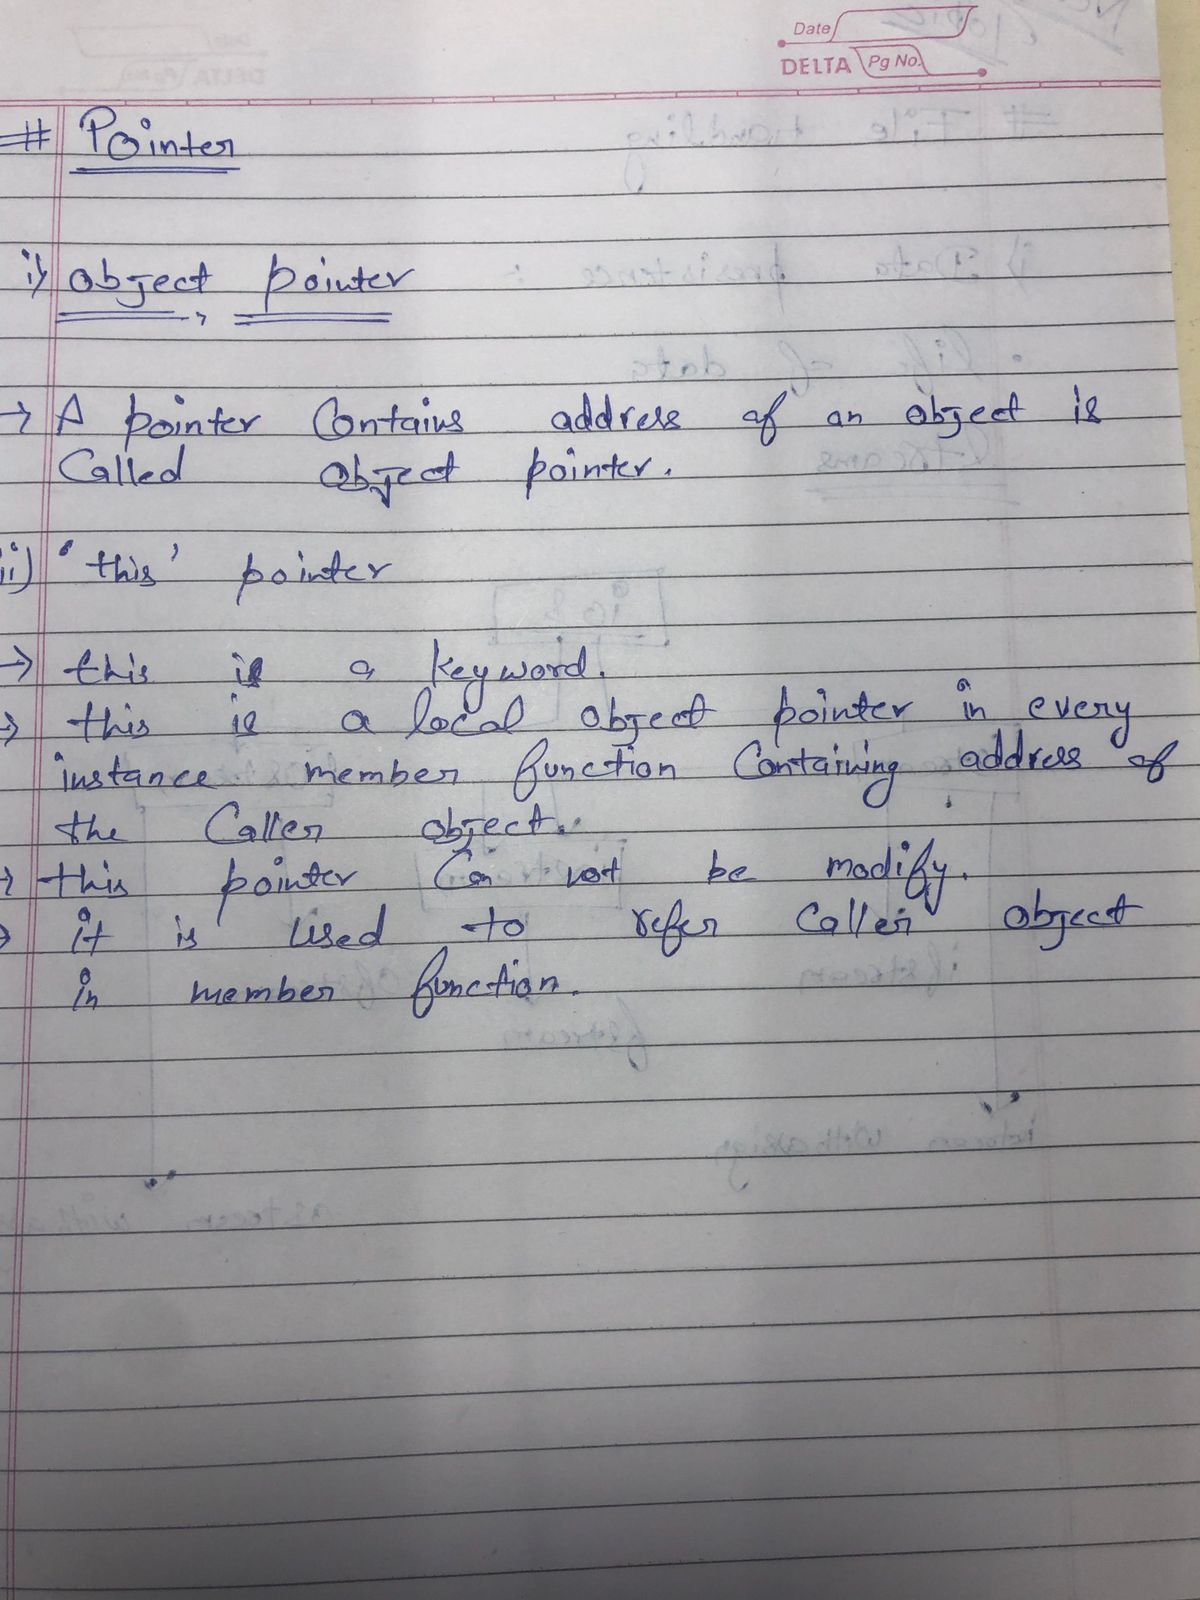 Date
DELTA Pg No.
# Pointer
i) object pointer
→ A pointer Contains address of an object is
Called object pointer.
ii) 'this' pointer
→ this is a keyword.
→ this is a local object pointer in every
instance member function Containing address of
the Caller object.
→ this pointer Can not be modify.
→ it is used to refer Caller object
in member function.